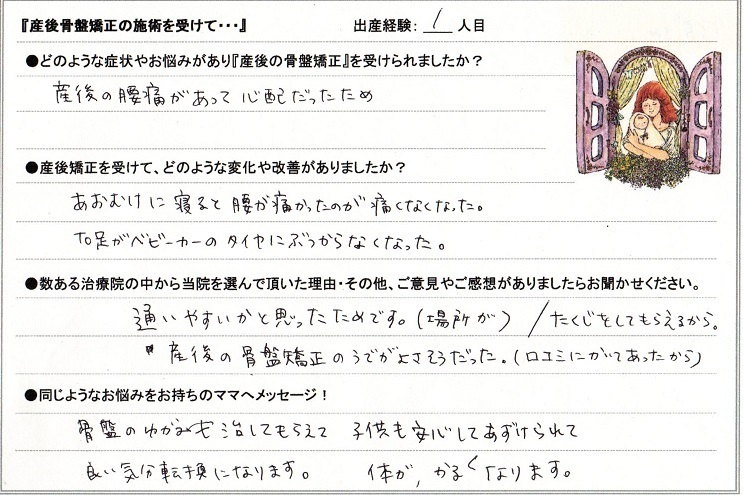 『産後骨盤矯正の施術を受けて・・・』 出産経験: 1 人目
●どのような症状やお悩みがあり『産後の骨盤矯正』を受けられましたか？
産後の腰痛があって心配だったため
●産後矯正を受けて、どのような変化や改善がありましたか？
あおむけに寝ると腰が痛かったのが痛くなくなった。
右足がベビーカーのタイヤにぶつからなくなった。
●数ある治療院の中から当院を選んで頂いた理由・その他、ご意見やご感想がありましたらお聞かせください。
通いやすいかと思ったためです。(場所が) / たくじをしてもらえるから。
産後の骨盤矯正のうでがよさそうだった。(口コミにかいてあったから)
●同じようなお悩みをお持ちのママへメッセージ！
骨盤のゆがみも治してもらえて 子供も安心してあずけられて
良い気分転換になります。 体が、かるくなります。